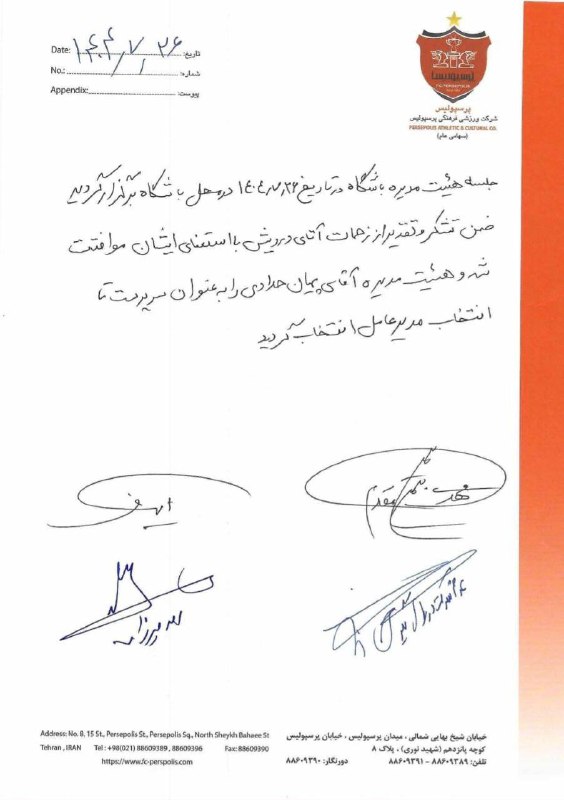 Date: ۱۴۰۴/۷/۲۶ تاریخ:
No.: شماره:
Appendix: پیوست:
پرسپولیس
F.C PERSEPOLIS
پرسپولیس
شرکت ورزشی فرهنگی پرسپولیس
PERSEPOLIS ATHLETIC & CULTURAL CO.
(سهامی عام)
جلسه هیئت مدیره باشگاه در تاریخ ۱۴۰۴/۷/۲۶ در محل باشگاه برگزار گردید
ضمن تشکر و تقدیر از زحمات آقای درویش با استعفای ایشان موافقت
شد و هیئت مدیره آقای پیمان حدادی را به عنوان سرپرست تا
انتخاب مدیرعامل انتخاب گردید
Address: No. 8, 15 St., Persepolis St., Persepolis Sq., North Sheykh Bahaee St
Tehran, IRAN Tel: +98(021) 88609389, 88609396 Fax: 88609390
https://www.fc-perspolis.com
خیابان شیخ بهایی شمالی، میدان پرسپولیس، خیابان پرسپولیس
کوچه پانزدهم (شهید نوری)، پلاک ۸
تلفن: ۸۸۶۰۹۳۸۹ - ۸۸۶۰۹۳۹۱ دورنگار: ۸۸۶۰۹۳۹۰